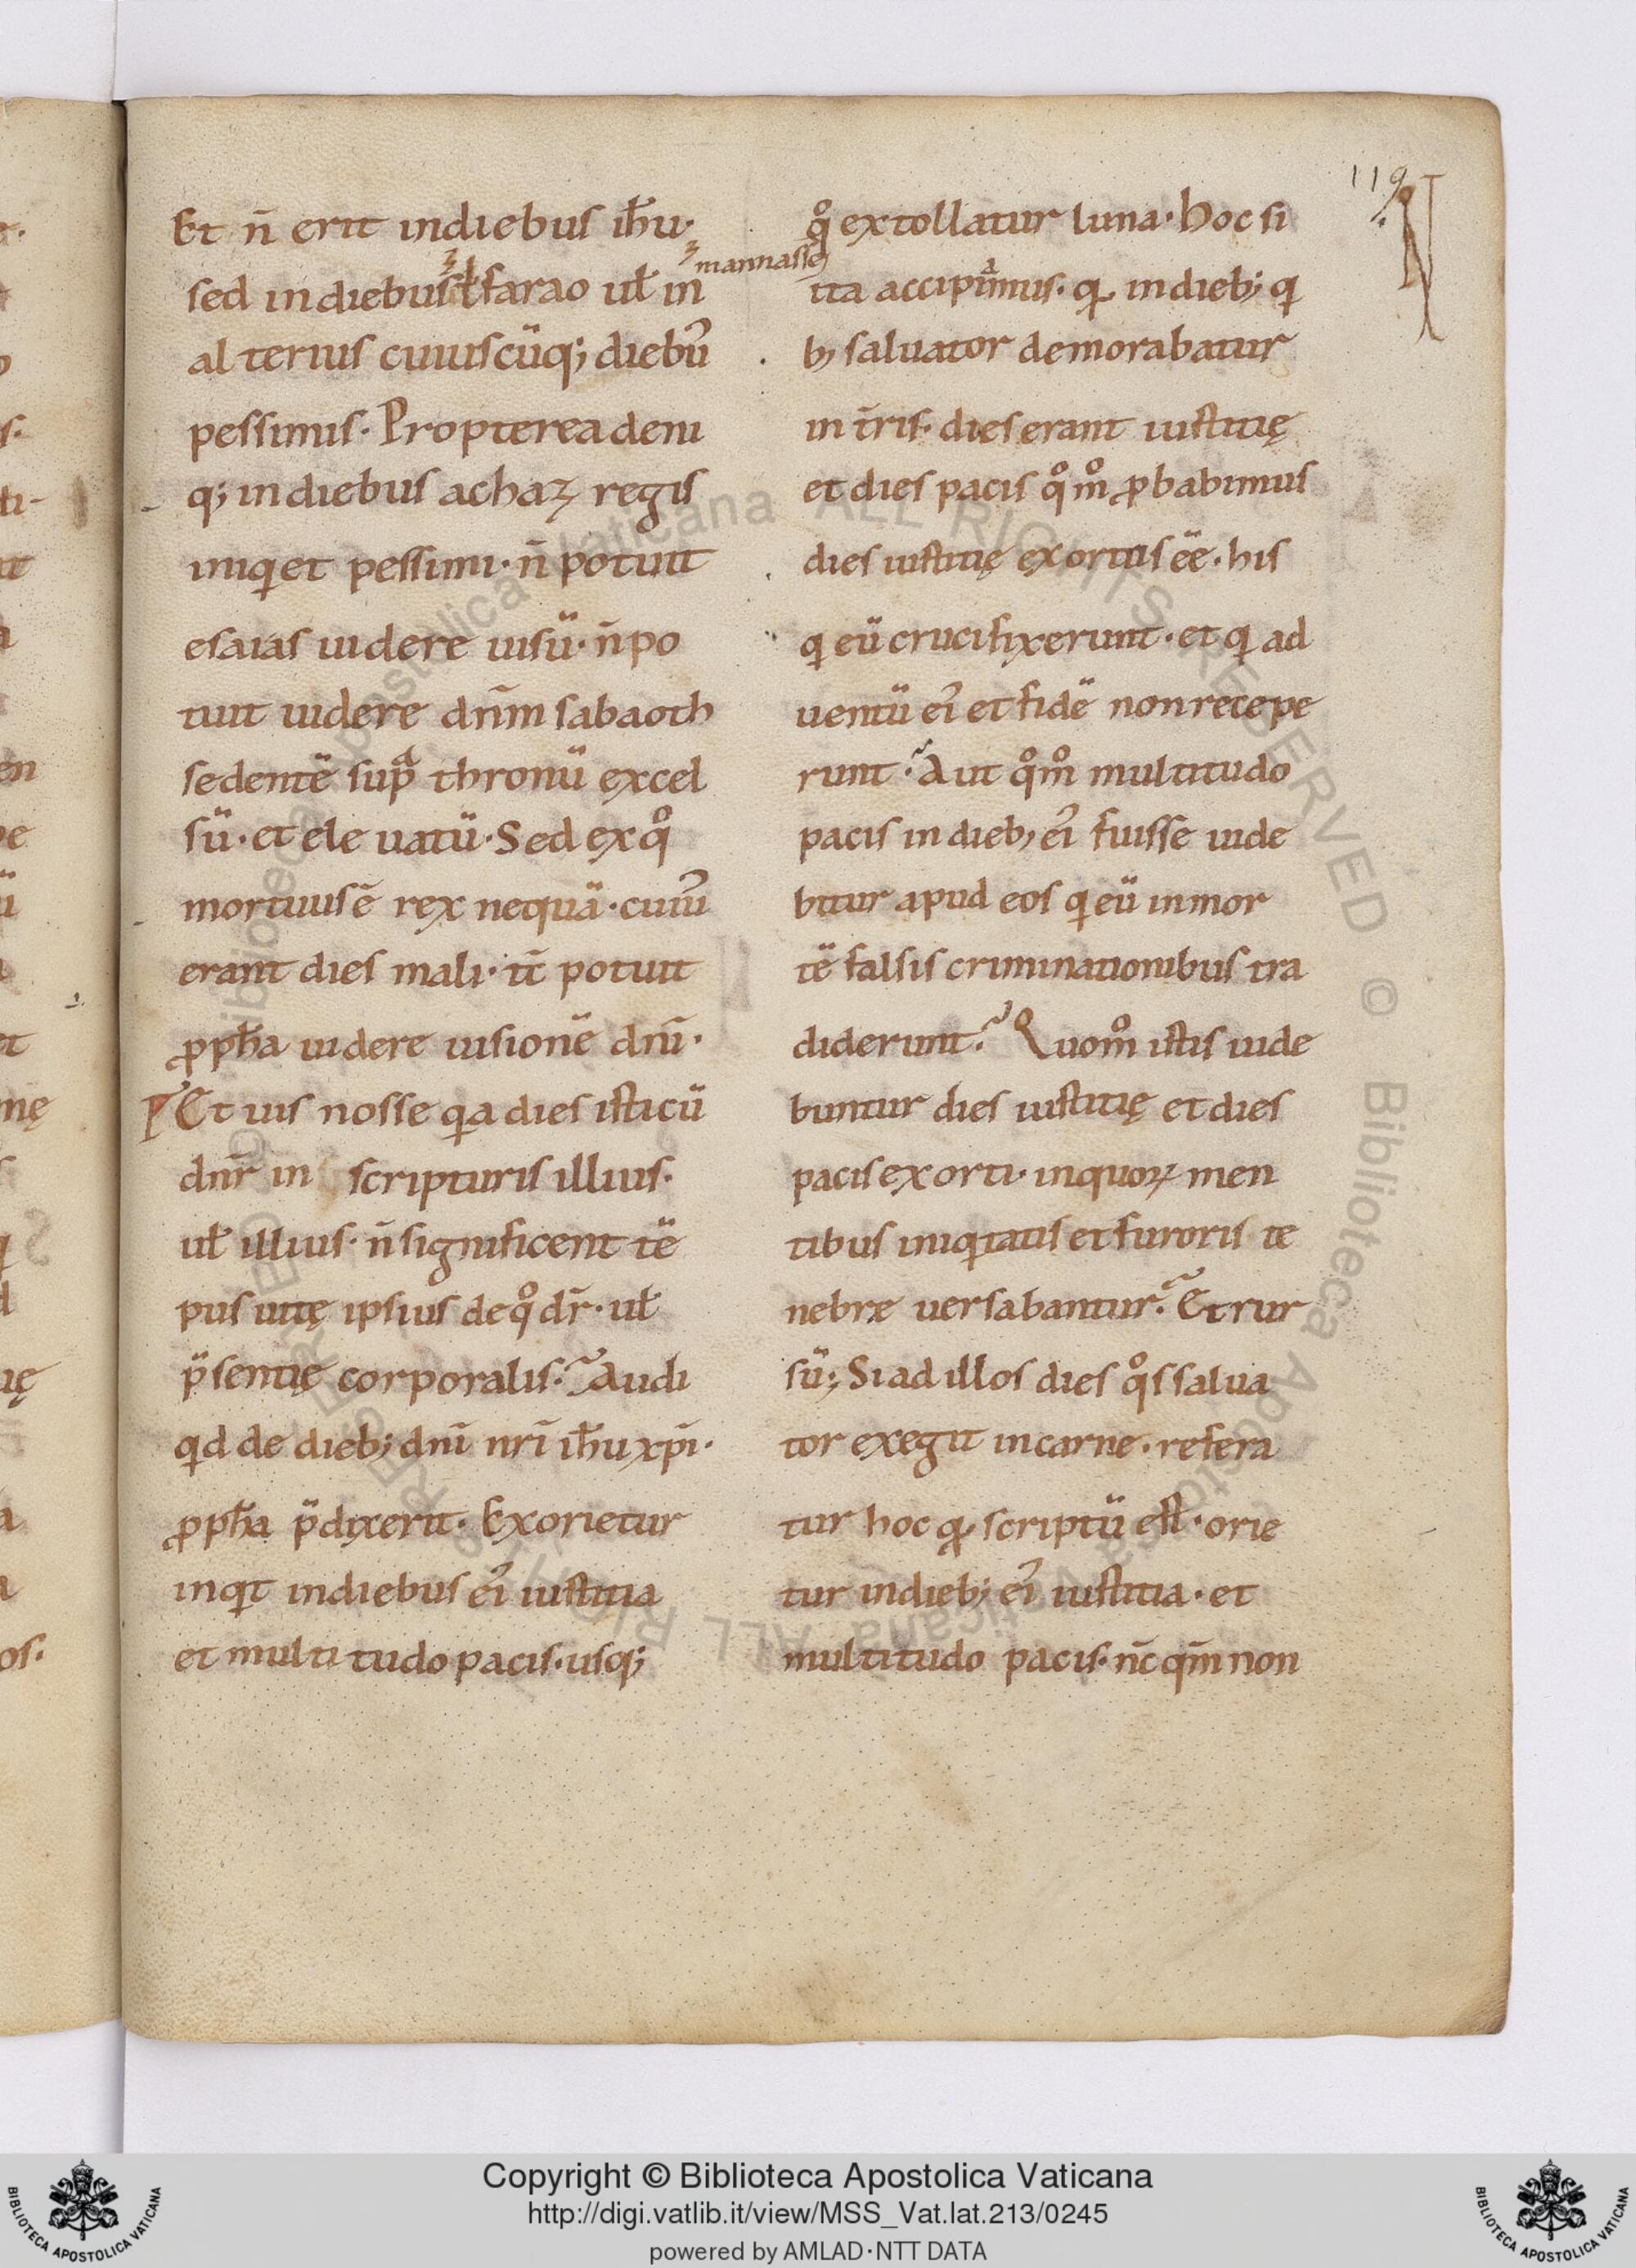 119
Et n̄ erit indiebus ih̄u·
sed indiebus ł farao uł in mannasse
alterius cuiuscūq; diebꝰ
pessimis· Propterea deni
q; indiebus achaz regis
iniq et pessimi· n̄ potuit
esaias uidere uisū· n̄ po
tuit uidere dn̄m sabaoth
sedentē supͣ thronū excel
sū· et eleuatū· Sed ex qͦ
mortuus ē rex nequā· cuiꝰ
erant dies mali· tc̄ potuit
ꝓph̄a uidere uisionē dn̄i·
Et uis nosse qa dies isticū
dn̄r in scripturis illius·
uł illius· n̄ significent tē
pus uitę ipsius de qͦ dr̄· uł
p̄sentię corporalis? Audi
qd de dieb; dn̄i nr̄i ih̄u xp̄i·
ꝓph̄a p̄dixerit· Exorietur
inqt indiebus eiꝰ iustitia
et multitudo pacis· usq;
qͦ extollatur luna· hoc si
ita accipimus· ꝙ indieb; q
b; saluator demorabatur
in t̄ris· dies erant iustitię
et dies pacis qͦmͦ ꝓbabimus
dies iustitię exortus eē· his
q eū crucifixerunt· et q ad
uentū eiꝰ et fidē non recepe
runt? Aut qͦmͦ multitudo
pacis indieb; eiꝰ fuisse uide
bitur apud eos q eū inmor
tē falsis criminationibus tra
diderunt? Quomͦ istis uide
buntur dies iustitię et dies
pacis exorti· inquoꝝ men
tibus iniqtatis et furoris te
nebre uersabantur? Et rur
sū; Si ad illos dies qͦs salua
tor exegit in carne· refera
tur hoc ꝙ scriptū est· orie
tur indieb; eiꝰ iustitia· et
multitudo pacis· nc̄ qm̄ non
Copyright © Biblioteca Apostolica Vaticana
http://digi.vatlib.it/view/MSS_Vat.lat.213/0245
powered by AMLAD·NTT DATA